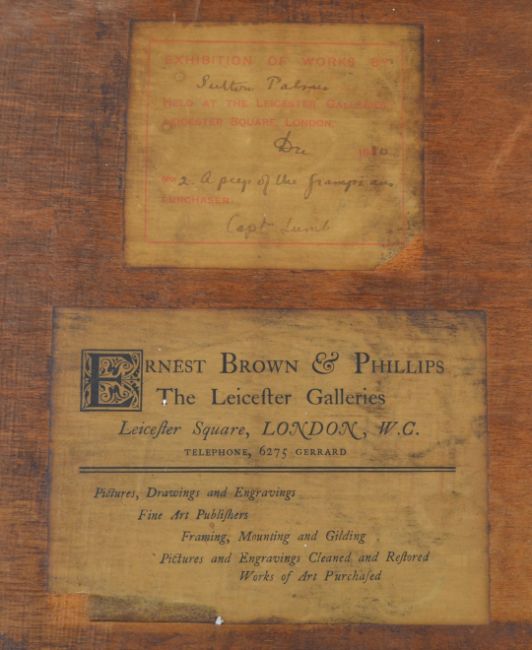 EXHIBITION OF WORKS BY
Sutton Palmer
HELD AT THE LEICESTER GALLERIES
LEICESTER SQUARE, LONDON.
Dec 1910
No 2. A peep of the Grampians
PURCHASER
Capt Lumb
ERNEST BROWN & PHILLIPS
The Leicester Galleries
Leicester Square, LONDON, W.C.
TELEPHONE, 6275 GERRARD
Pictures, Drawings and Engravings
Fine Art Publishers
Framing, Mounting and Gilding
Pictures and Engravings Cleaned and Restored
Works of Art Purchased